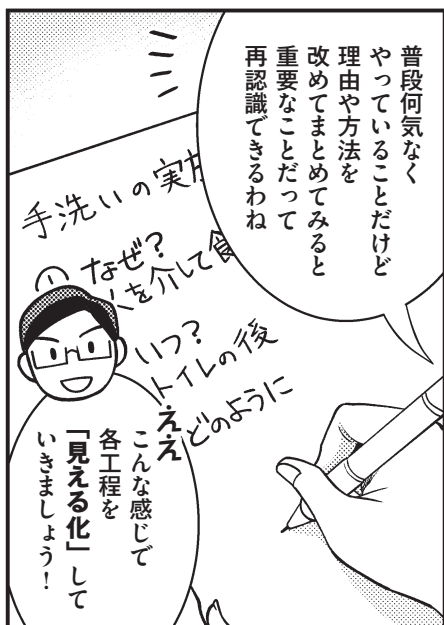 普段何気なく
やっていることだけど
理由や方法を
改めてまとめてみると
重要なことだって
再認識できるわね
手洗いの実施
なぜ？
人を介して食
いつ？
トイレの後
どのように
ええ
こんな感じで
各工程を
「見える化」して
いきましょう！